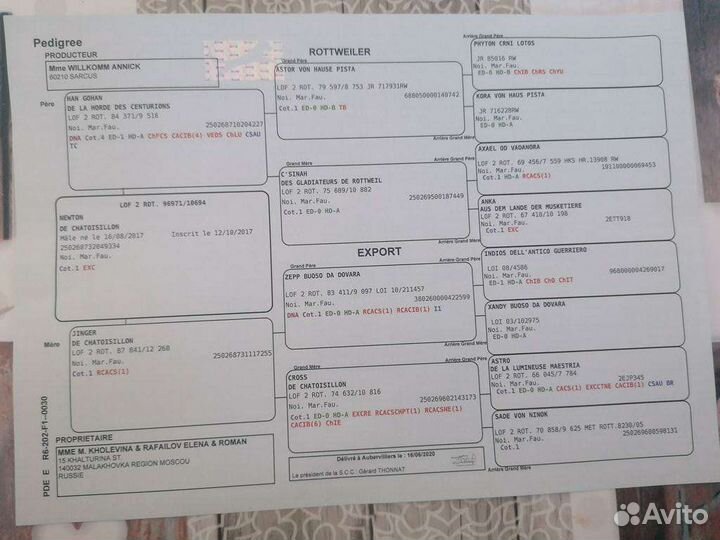 Pedigree
PRODUCTEUR
Mme WILLKOMM ANNICK
60210 SARCUS
ROTTWEILER
EXPORT
Père
HAN GOHAN
DE LA HORDE DES CENTURIONS
LOF 2 ROT. 84 371/9 516
Noi. Mar.Fau. 250268710204227
DNA Cot.4 ED-1 HD-A ChFCS CACIB(4) VEDS ChLU CSAU
TC
LOF 2 ROT. 96971/10694
NEWTON
DE CHATOISILLON
Mâle né le 16/08/2017 Inscrit le 12/10/2017
250268732049334
Noi. Mar.Fau.
Cot.1 EXC
Mère
JINGER
DE CHATOISILLON
LOF 2 ROT. 87 841/12 268
Noi. Mar.Fau. 250268731117255
Cot.1 RCACS(1)
Grand Père
ASTOR VON HAUSE PISTA
LOF 2 ROT. 79 597/8 753 JR 717931RW
Noi. Mar.Fau. 688050000140742
Cot.1 ED-0 HD-B TB
Grand Mère
C'SINAH
DES GLADIATEURS DE ROTTWEIL
LOF 2 ROT. 75 689/10 882
Noi. Mar.Fau. 250269500187449
Cot.1 ED-0 HD-A
Grand Père
ZEPP BUOSO DA DOVARA
LOF 2 ROT. 83 411/9 097 LOI 10/211457
Noi. Mar.Fau. 380260000422599
DNA Cot.1 ED-0 HD-A RCACS(1) RCACIB(1) II
Grand Mère
CROSS
DE CHATOISILLON
LOF 2 ROT. 74 632/10 816
Noi. Mar.Fau. 250269602143173
Cot.1 ED-0 HD-A EXCRE RCACSCHPT(1) RCACSNE(1)
CACIB(6) ChIE
Arrière Grand Père
PHYTON CRNI LOTOS
JR 85016 RW
Noi. Mar.Fau.
ED-0 HD-B ChIB ChRS ChYU
Arrière Grand Mère
KORA VON HAUS PISTA
JR 71622BRW
Noi. Mar.Fau.
ED-0 HD-A
Arrière Grand Père
AXAEL OD VADANORA
LOF 2 ROT. 69 456/7 559 HKS HR.13908 RW
Noi. Mar.Fau. 191100000069453
Cot.1 HD-A RCACS(1)
Arrière Grand Mère
ANKA
AUS DEM LANDE DER MUSKETIERE
LOF 2 ROT. 67 418/10 198
Noi. Mar.Fau. 2ETT918
Cot.1 EXC
Arrière Grand Père
INDIOS DELL'ANTICO GUERRIERO
LOI 08/4586
Noi. Mar.Fau. 968000004269017
ED-1 HD-A ChIB ChO ChIT
Arrière Grand Mère
XANDY BUOSO DA DOVARA
LOI 03/102975
Noi. Mar.Fau.
ED-0 HD-A
Arrière Grand Père
ASTRO
DE LA LUMINEUSE MAESTRIA
LOF 2 ROT. 66 045/7 784
Noi. Mar.Fau. 2EJP345
Cot.1 ED-0 HD-A CACS(1) EXCCTNE CACIB(1) CSAU BR
Arrière Grand Mère
SADE VON NINOK
LOF 2 ROT. 70 858/9 625 MET ROTT.8230/05
Noi. Mar.Fau. 250269600598131
PROPRIETAIRE
MME M. KHOLEVINA & RAFAILOV ELENA & ROMAN
15 KHALTURINA ST.
140032 MALAKHOVKA REGION MOSCOU
RUSSIE
Délivré à Aubervilliers le : 16/06/2020
Le président de la S.C.C : Gérard THONNAT
PDE E R6-202-F1--0030
Avito